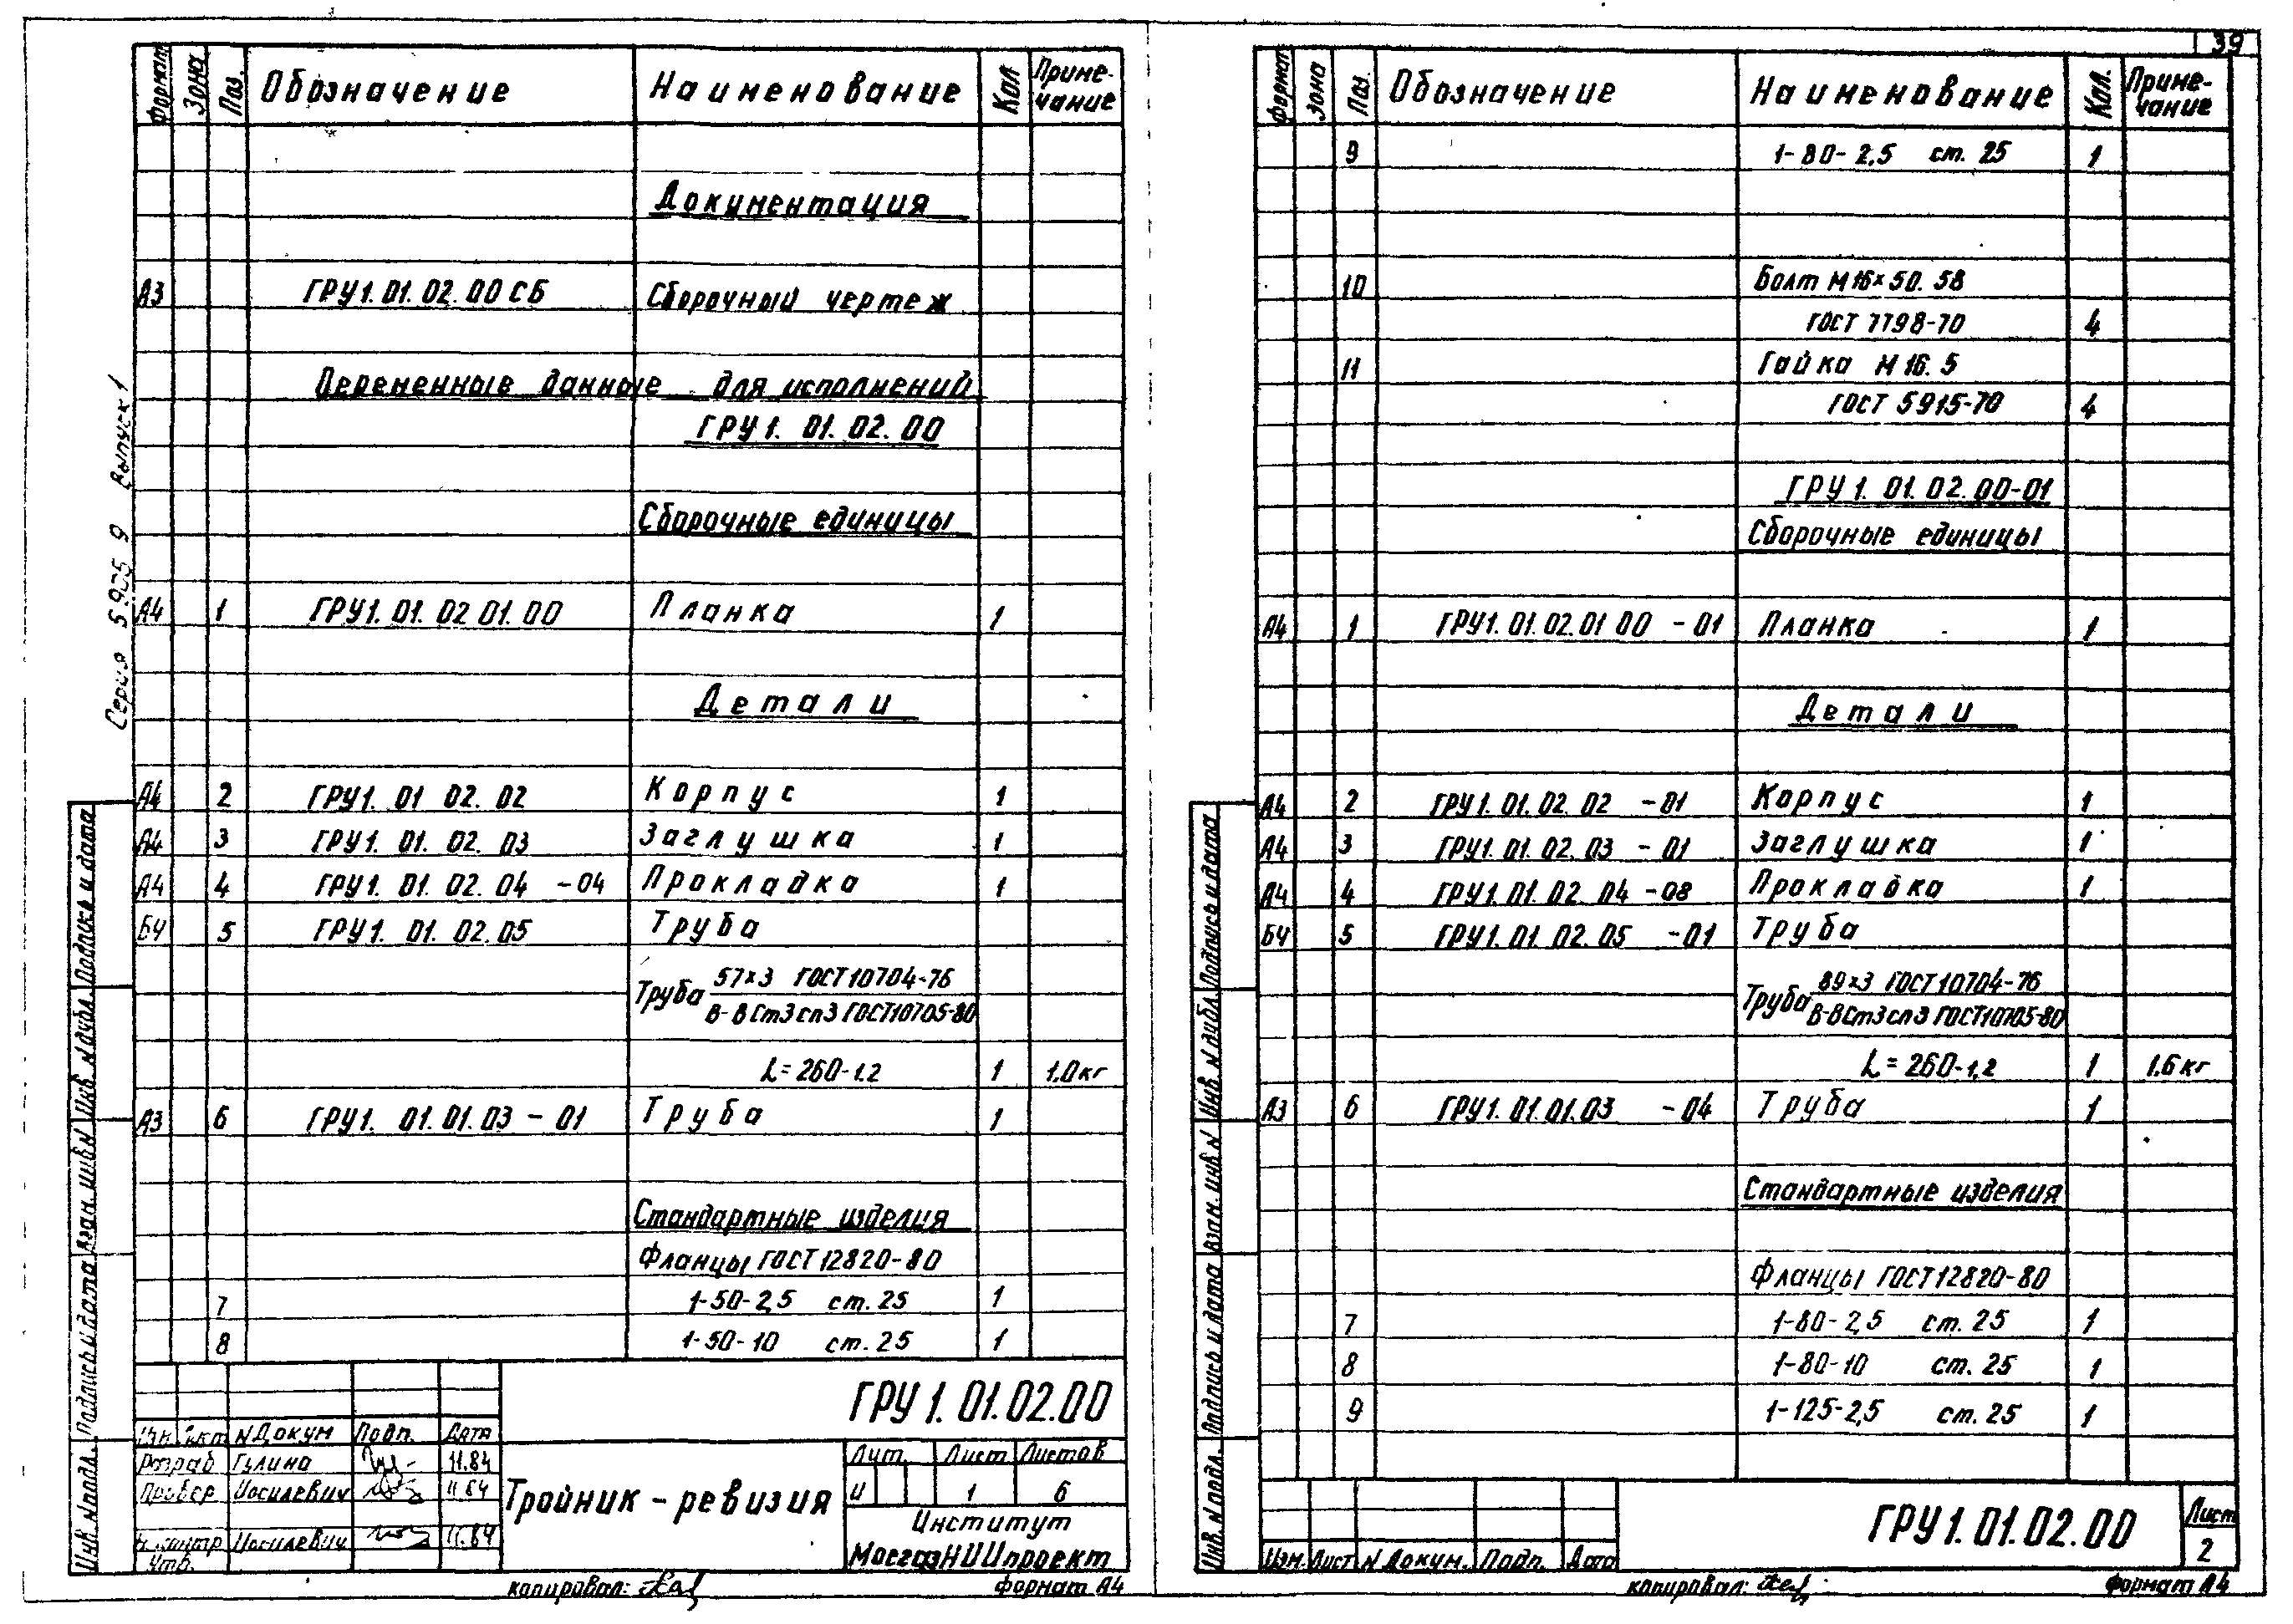 39
Формат Зона Поз. Обозначение Наименование Кол Приме-чание
Документация
А3 ГРУ1.01.02.00 СБ Сборочный чертеж
Переменные данные для исполнений
ГРУ1.01.02.00
Сборочные единицы
А4 1 ГРУ1.01.02 01.00 Планка 1
Детали
А4 2 ГРУ1.01 02.02 Корпус 1
А4 3 ГРУ1.01.02.03 Заглушка 1
А4 4 ГРУ1.01.02.04 -04 Прокладка 1
БЧ 5 ГРУ1.01.02.05 Труба
Труба 57×3 ГОСТ10704-76
В-ВСт3сп3 ГОСТ10705-80
L=260-1.2 1 1.0кг
А3 6 ГРУ1.01.01.03-01 Труба 1
Стандартные изделия
Фланцы ГОСТ12820-80
7 1-50-2,5 ст.25 1
8 1-50-10 ст.25 1
Серия 5.905 9 Выпуск 1
Инв. N подл. Подпись и дата Взам. инв N Инв. N дубл. Подпись и дата
ГРУ1.01.02.00
N Докум Подп. Дата
Разраб Гулина 11.84
Провер Иосилевич 11.84
Н.контр Иосилевич 11.84
Утв.
Тройник-ревизия
Лит. Лист Листов
И 1 6
Институт
МосгазНИИпроект
копировал:
Формат А4
Формат Зона Поз. Обозначение Наименование Кол. Приме-чание
9 1-80-2,5 ст. 25 1
10 Болт М16×50.58
ГОСТ 7798-70 4
11 Гайка М16.5
ГОСТ 5915-70 4
ГРУ1.01.02.00-01
Сборочные единицы
А4 1 ГРУ1.01.02.01 00 -01 Планка 1
Детали
А4 2 ГРУ1.01.02.02 -01 Корпус 1
А4 3 ГРУ1.01.02.03 -01 Заглушка 1
А4 4 ГРУ1.01.02.04 -08 Прокладка 1
БЧ 5 ГРУ1.01.02.05 -01 Труба
Труба 89×3 ГОСТ10704-76
В-ВСт3сп3 ГОСТ10705-80
L=260-1,2 1 1.6кг
А3 6 ГРУ1.01.01.03 -04 Труба 1
Стандартные изделия
Фланцы ГОСТ12820-80
7 1-80-2,5 ст.25 1
8 1-80-10 ст.25 1
9 1-125-2,5 ст.25 1
Инв. N подл. Подпись и дата Взам. инв. N Инв. N дубл. Подпись и дата
Изм. Лист N Докум. Подп. Дата
ГРУ1.01.02.00
Лист
2
копировал:
Формат А4